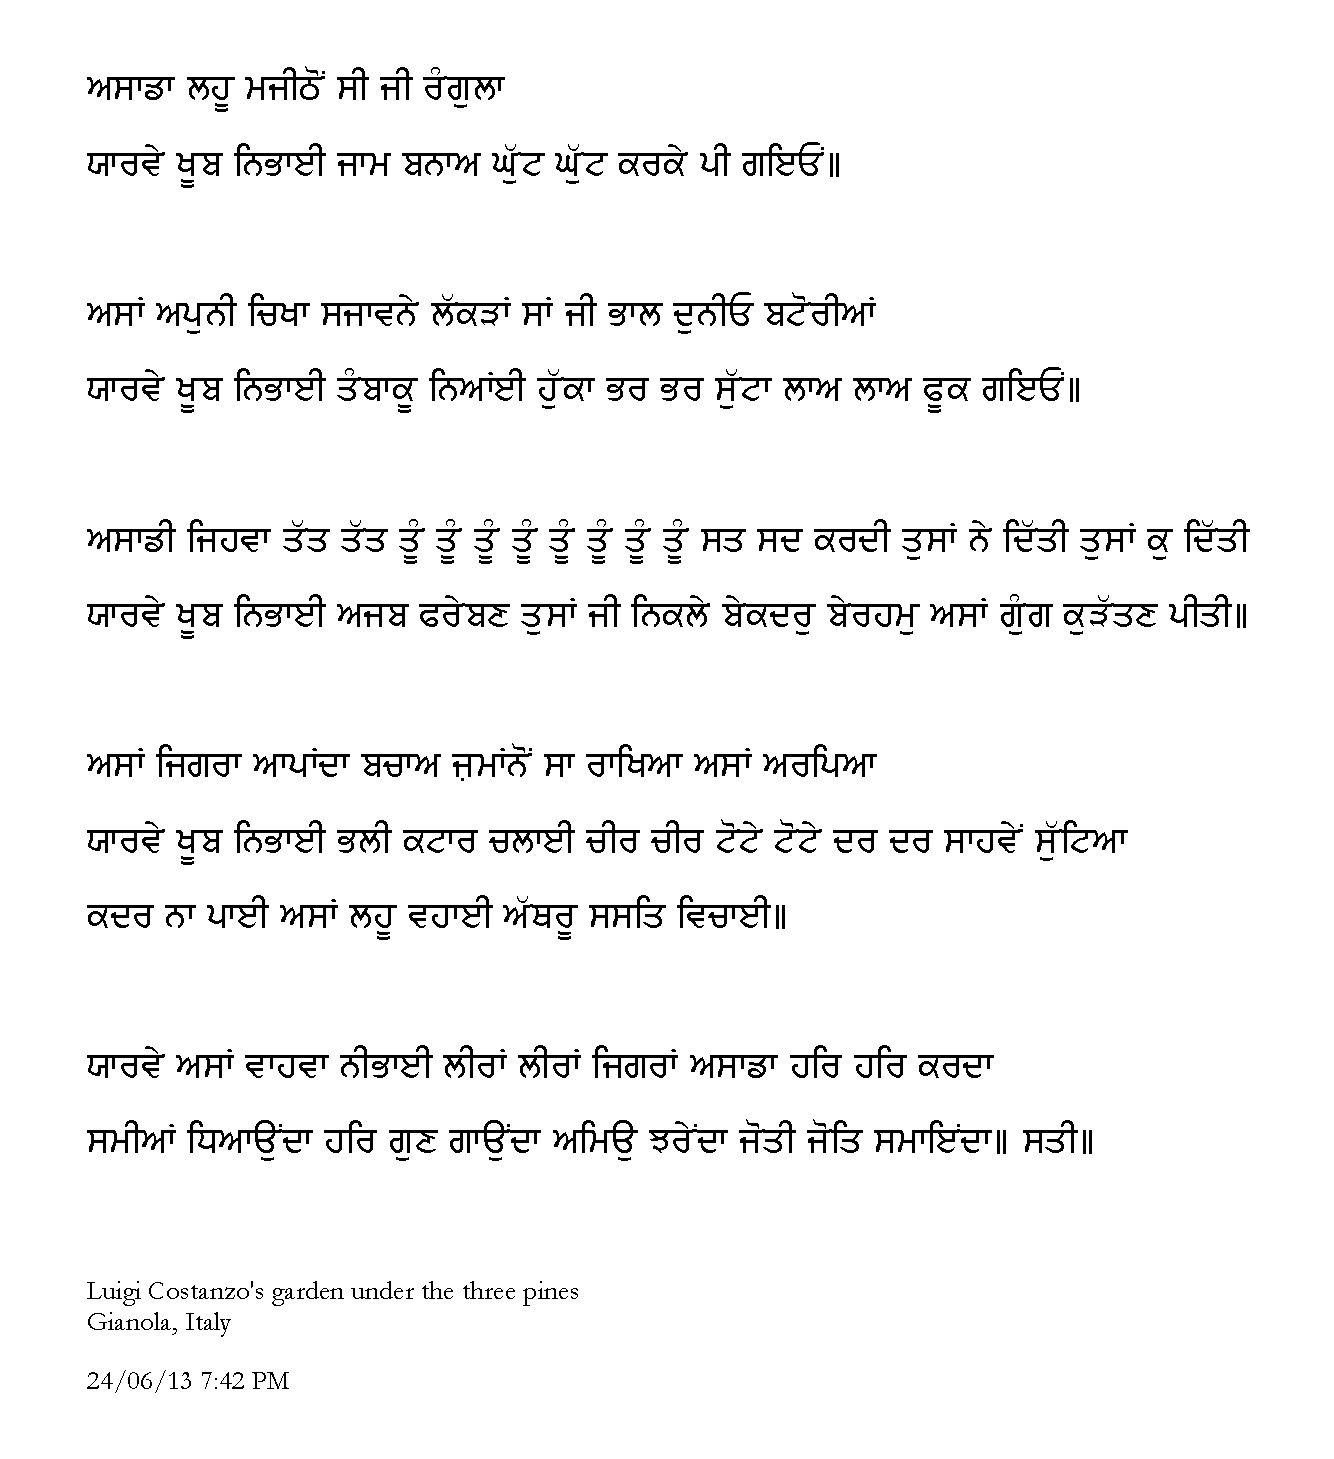 ਅਸਾਡਾ ਲਹੂ ਮਜੀਠੋਂ ਸੀ ਜੀ ਰੰਗੁਲਾ
ਯਾਰਵੇ ਖੂਬ ਨਿਭਾਈ ਜਾਮ ਬਨਾਅ ਘੁੱਟ ਘੁੱਟ ਕਰਕੇ ਪੀ ਗਇਓਂ॥
ਅਸਾਂ ਅਪੁਨੀ ਚਿਖਾ ਸਜਾਵਨੇ ਲੱਕੜਾਂ ਸਾਂ ਜੀ ਭਾਲ ਦੁਨੀਓ ਬਟੋਰੀਆਂ
ਯਾਰਵੇ ਖੂਬ ਨਿਭਾਈ ਤੰਬਾਕੂ ਨਿਆਂਈ ਹੁੱਕਾ ਭਰ ਭਰ ਸੁੱਟਾ ਲਾਅ ਲਾਅ ਫੂਕ ਗਇਓਂ॥
ਅਸਾਡੀ ਜਿਹਵਾ ਤੱਤ ਤੱਤ ਤੂੰ ਤੂੰ ਤੂੰ ਤੂੰ ਤੂੰ ਤੂੰ ਤੂੰ ਤੂੰ ਸਤ ਸਦ ਕਰਦੀ ਤੁਸਾਂ ਨੇ ਦਿੱਤੀ ਤੁਸਾਂ ਕੁ ਦਿੱਤੀ
ਯਾਰਵੇ ਖੂਬ ਨਿਭਾਈ ਅਜਬ ਫਰੇਬਣ ਤੁਸਾਂ ਜੀ ਨਿਕਲੇ ਬੇਕਦਰੁ ਬੇਰਹਮੁ ਅਸਾਂ ਗੁੰਗ ਕੁੜੱਤਣ ਪੀਤੀ॥
ਅਸਾਂ ਜਿਗਰਾ ਆਪਾਂਦਾ ਬਚਾਅ ਜ਼ਮਾਂਨੋਂ ਸਾ ਰਾਖਿਆ ਅਸਾਂ ਅਰਪਿਆ
ਯਾਰਵੇ ਖੂਬ ਨਿਭਾਈ ਭਲੀ ਕਟਾਰ ਚਲਾਈ ਚੀਰ ਚੀਰ ਟੋਟੇ ਟੋਟੇ ਦਰ ਦਰ ਸਾਹਵੇਂ ਸੁੱਟਿਆ
ਕਦਰ ਨਾ ਪਾਈ ਅਸਾਂ ਲਹੂ ਵਹਾਈ ਅੱਥਰੂ ਸਸਤਿ ਵਿਚਾਈ॥
ਯਾਰਵੇ ਅਸਾਂ ਵਾਹਵਾ ਨੀਭਾਈ ਲੀਰਾਂ ਲੀਰਾਂ ਜਿਗਰਾਂ ਅਸਾਡਾ ਹਰਿ ਹਰਿ ਕਰਦਾ
ਸਮੀਆਂ ਧਿਆਉਂਦਾ ਹਰਿ ਗੁਣ ਗਾਉਂਦਾ ਅਮਿਉ ਝਰੇਂਦਾ ਜੋਤੀ ਜੋਤਿ ਸਮਾਇਂਦਾ॥ ਸਤੀ॥
Luigi Costanzo's garden under the three pines
Gianola, Italy
24/06/13 7:42 PM